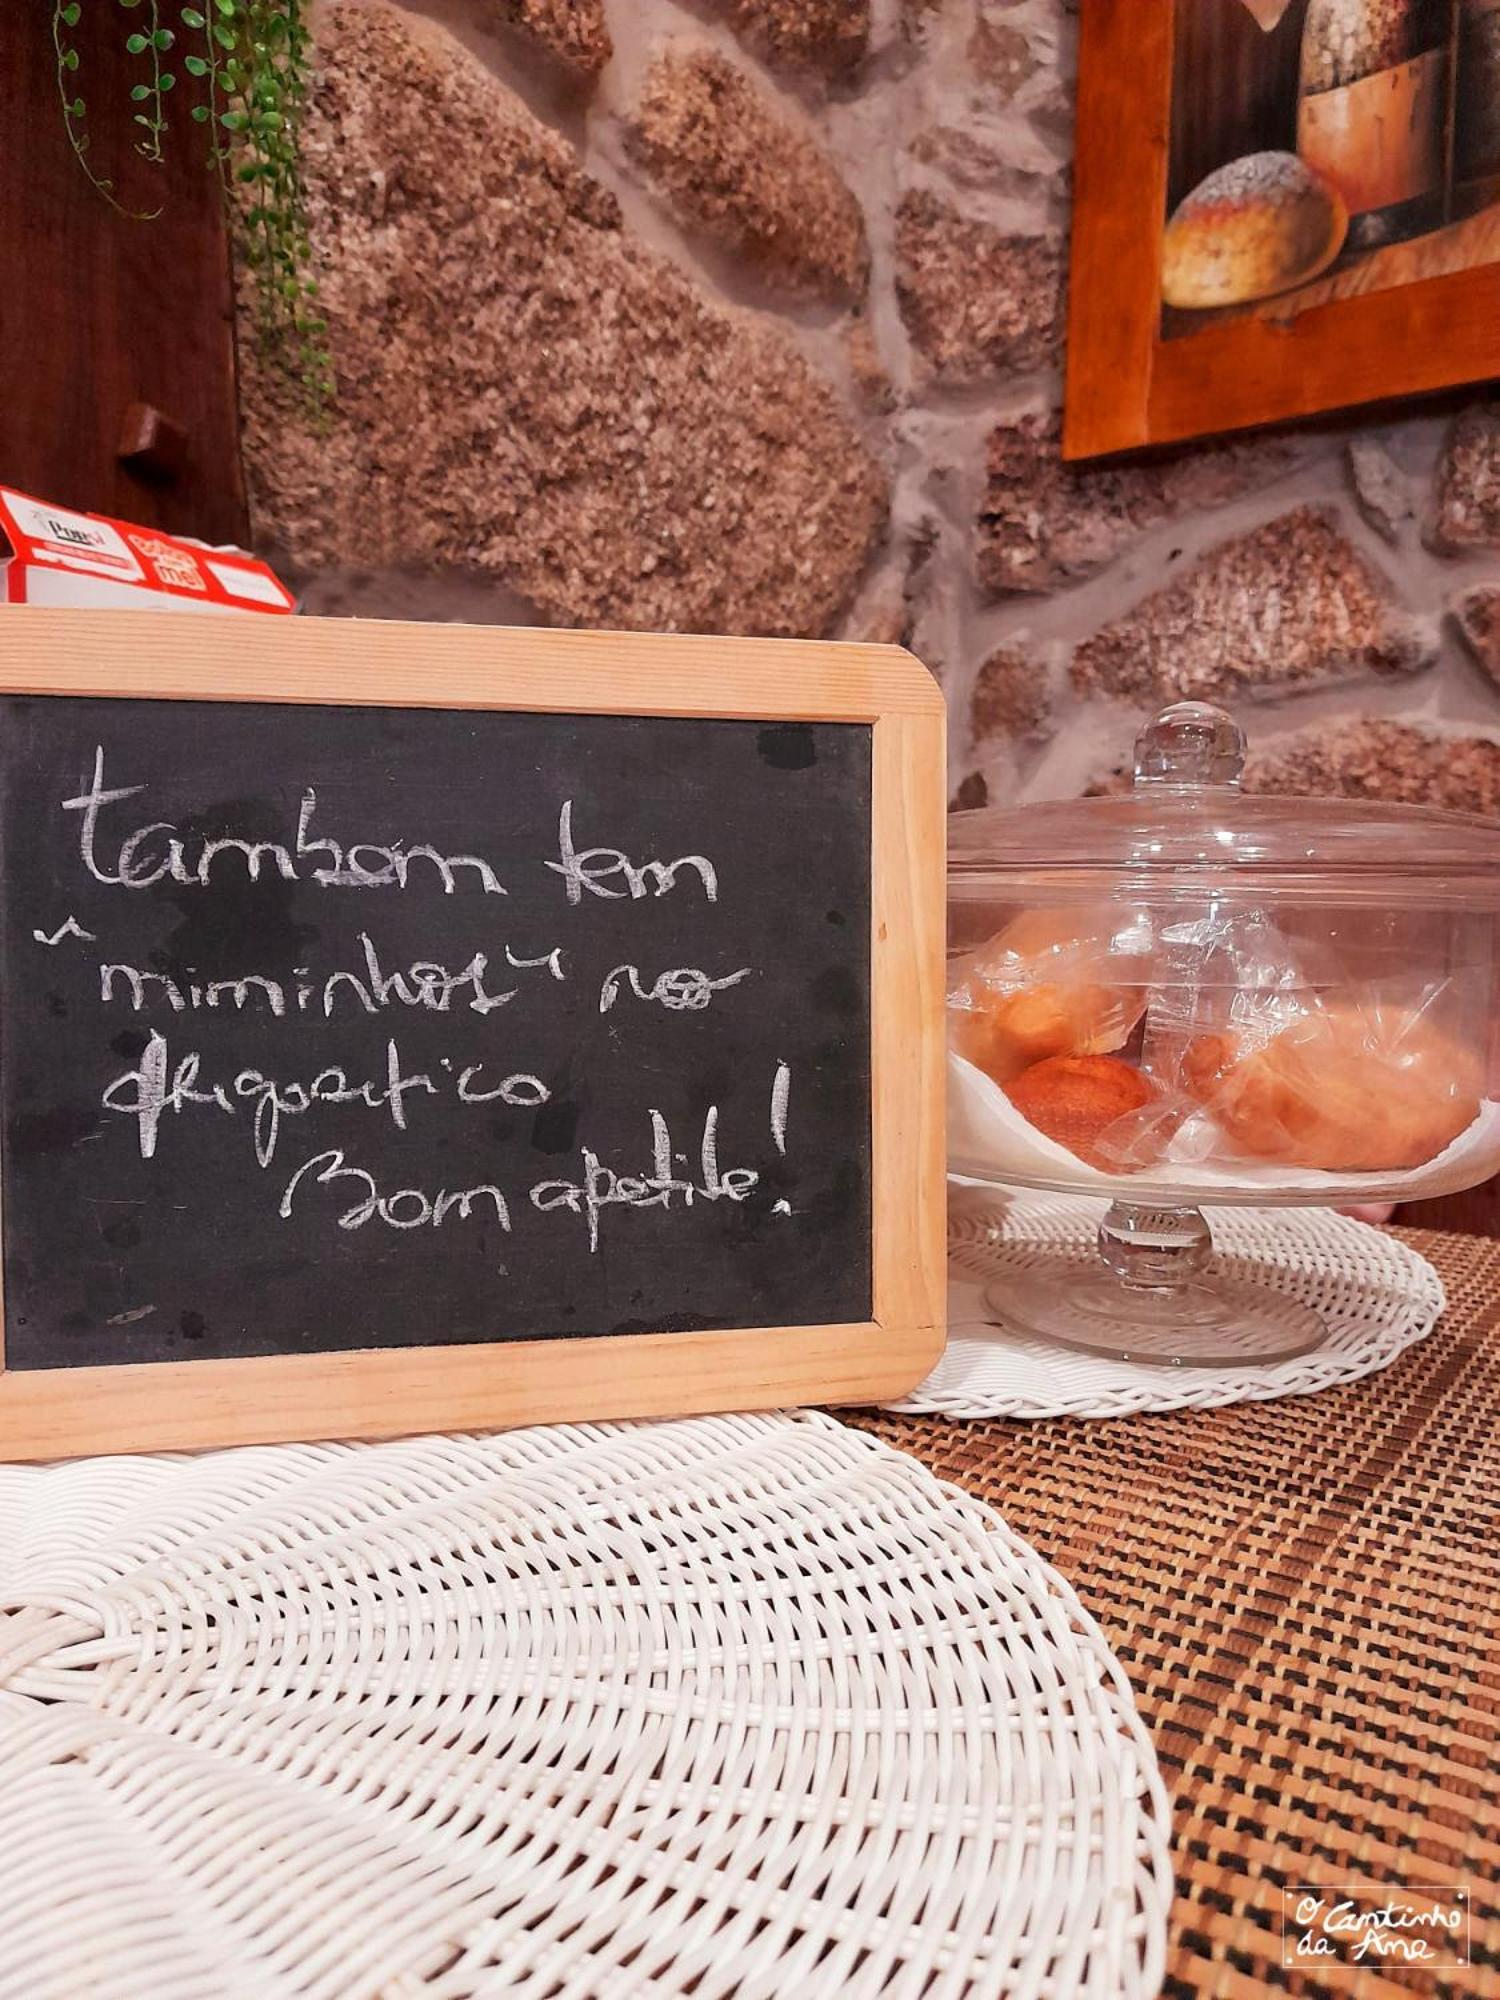 Popsi
Bolos
de
mel
também tem
"miminhos" no
frigorífico
Bom apetite!
O Cantinho
da Ana